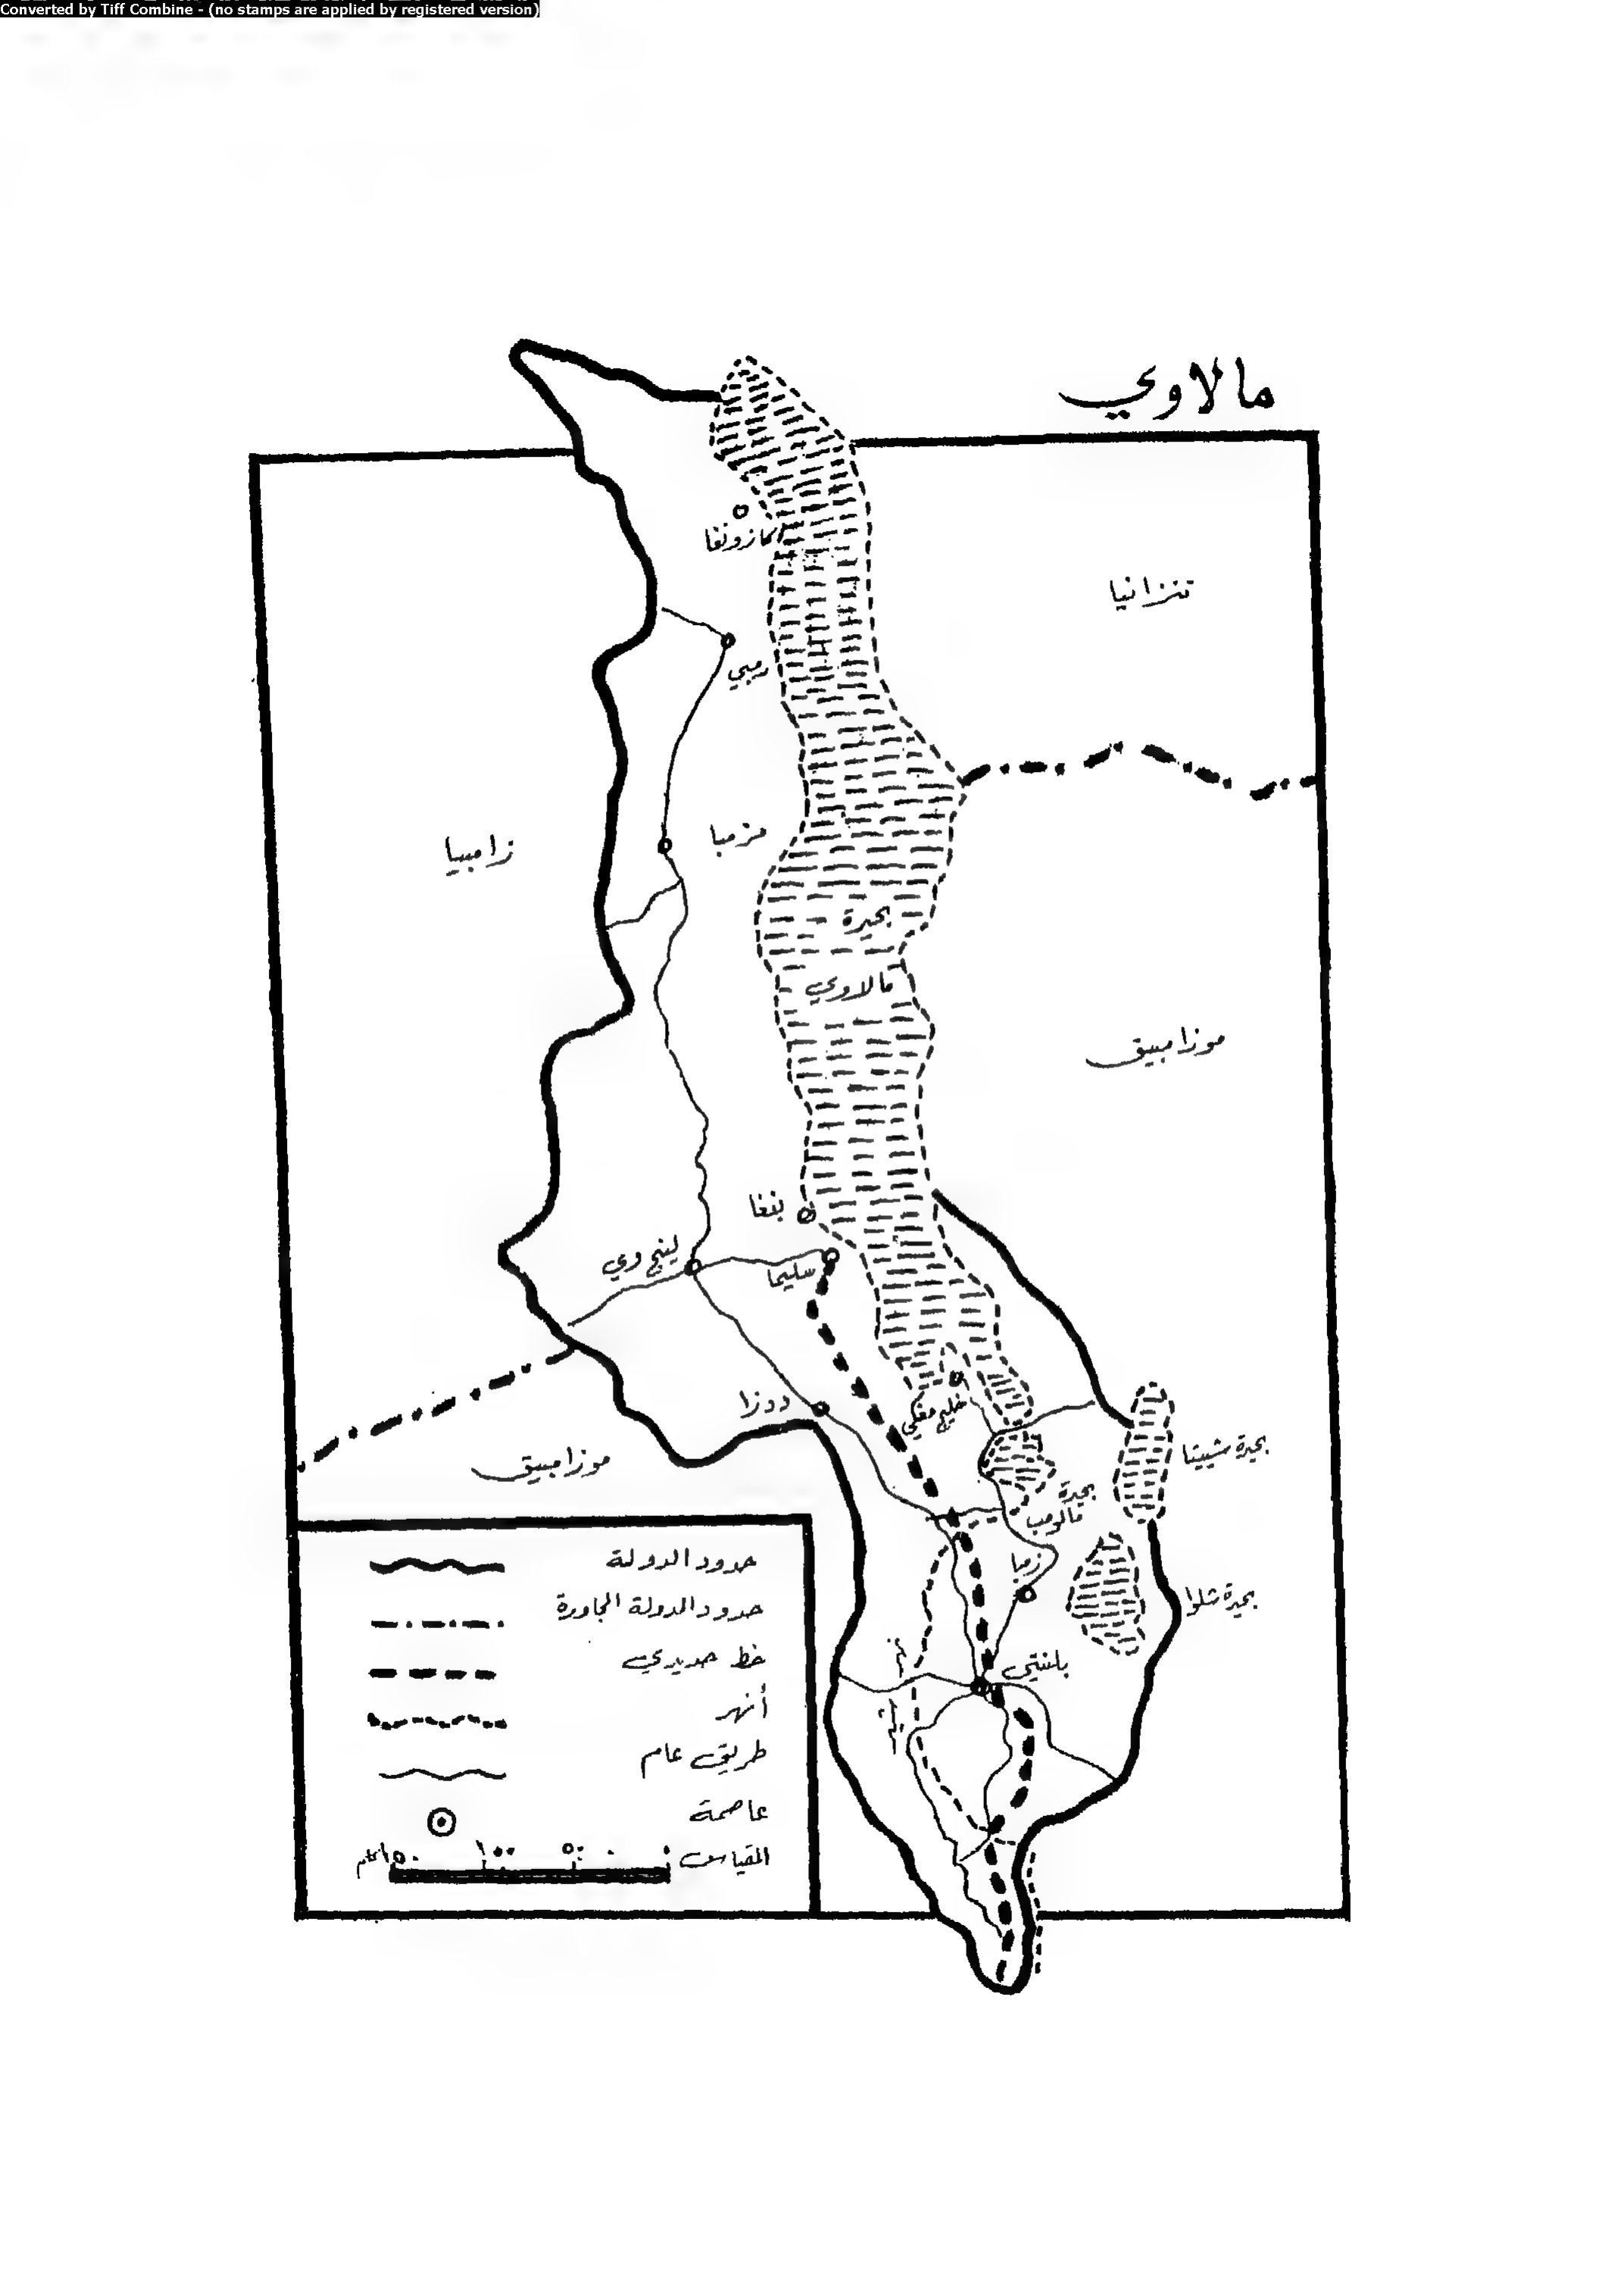 Converted by Tiff Combine - (no stamps are applied by registered version)
مالاوي
كازونغا
تنزانيا
رمبي
مزمبا
زامبيا
بحيرة
مالاوي
موزامبيق
بنغا
لينج وي
سليما
ددزا
خليج
موزامبيق
بحيرة شيتا
بحيرة
مالومب
زمبا
بحيرة شلوا
بلنتي
حدود الدولة
حدود الدولة المجاورة
خط حديدي
أنهر
طريق عام
عاصمة
المقياس
٠ ٥٠ ١٠٠ ١٥٠ كلم